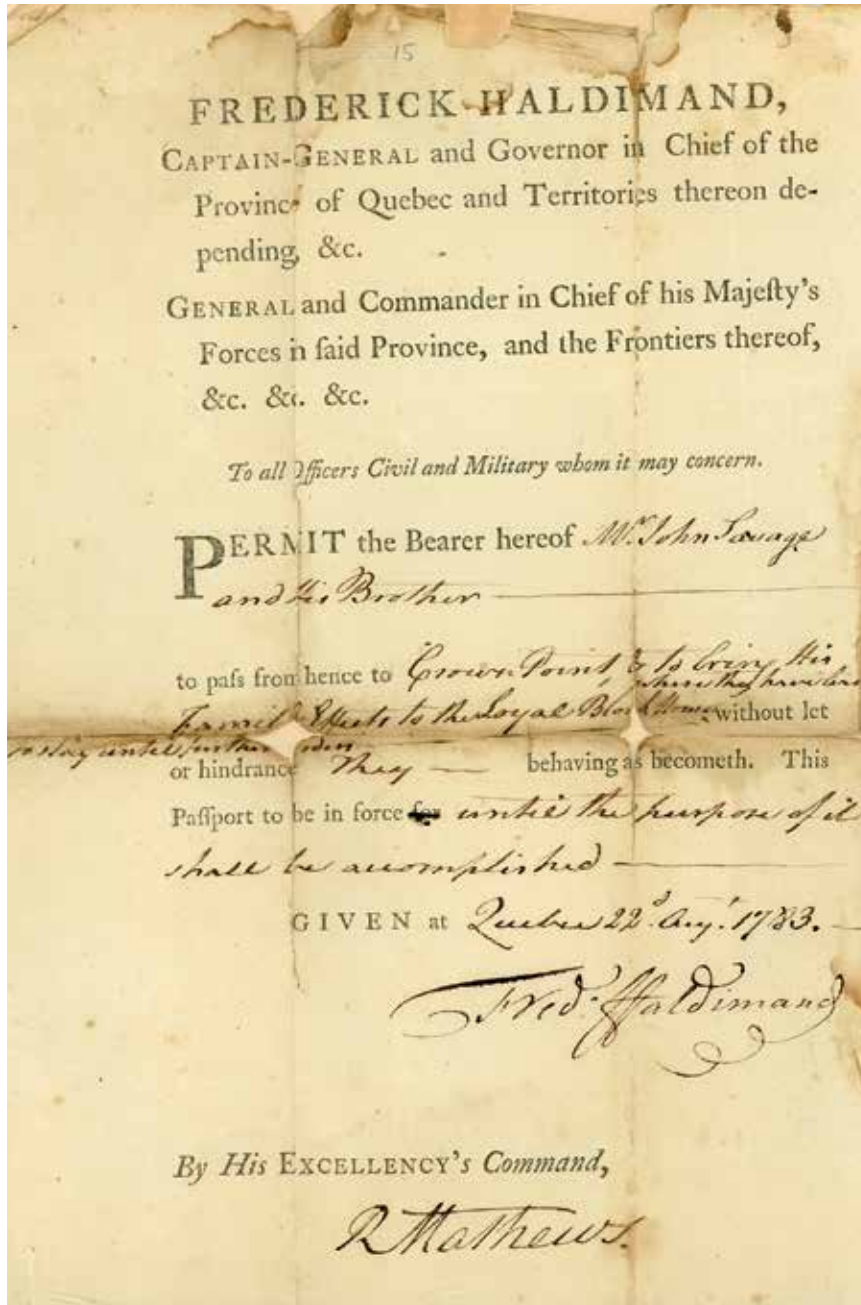 15
FREDERICK HALDIMAND,
CAPTAIN-GENERAL and Governor in Chief of the
Province of Quebec and Territories thereon de-
pending, &c.
GENERAL and Commander in Chief of his Majeſty's
Forces in ſaid Province, and the Frontiers thereof,
&c. &c. &c.
To all Officers Civil and Military whom it may concern.
PERMIT the Bearer hereof Mr. John Savage
and His Brother
to paſs from hence to Crown Point & to bring His
where they have
Family Effects to the Loyal Block House, without let
to stay until further orders
or hindrance They behaving as becometh. This
Paſſport to be in force for until the purpose of it
shall be accomplished
GIVEN at Quebec 22d. Augt. 1783.
Fred: Haldimand
By His EXCELLENCY's Command,
R Mathews.